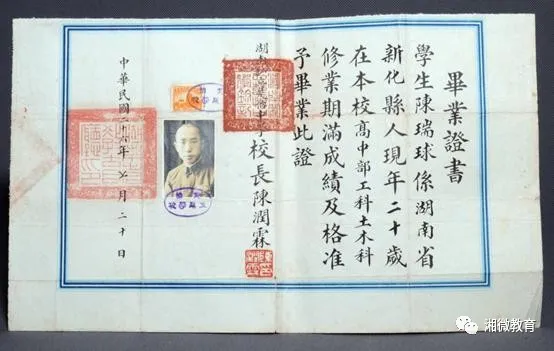 畢業證書
學生陳瑞球係湖南省
新化縣人現年二十歲
在本校高中部工科土木科
修業期滿成績及格准
予畢業此證
湖 校長陳潤霖
中華民國二十六年 月二十日
湘微教育